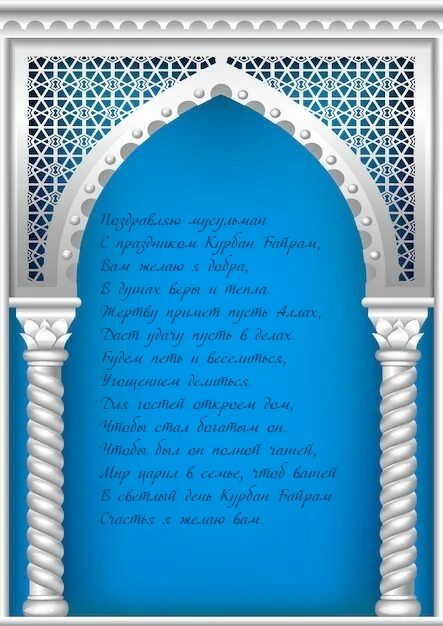 Поздравляю мусульман
С праздником Курбан Байрам,
Вам желаю я добра,
В душах веры и тепла.
Жертву примет пусть Аллах,
Даст удачу пусть в делах.
Будем петь и веселиться,
Угощением делиться.
Для гостей откроем дом,
Чтобы стал богатым он.
Чтобы был он полной чашей,
Мир царил в семье, чтоб вашей.
В светлый день Курбан Байрам
Счастья я желаю вам.